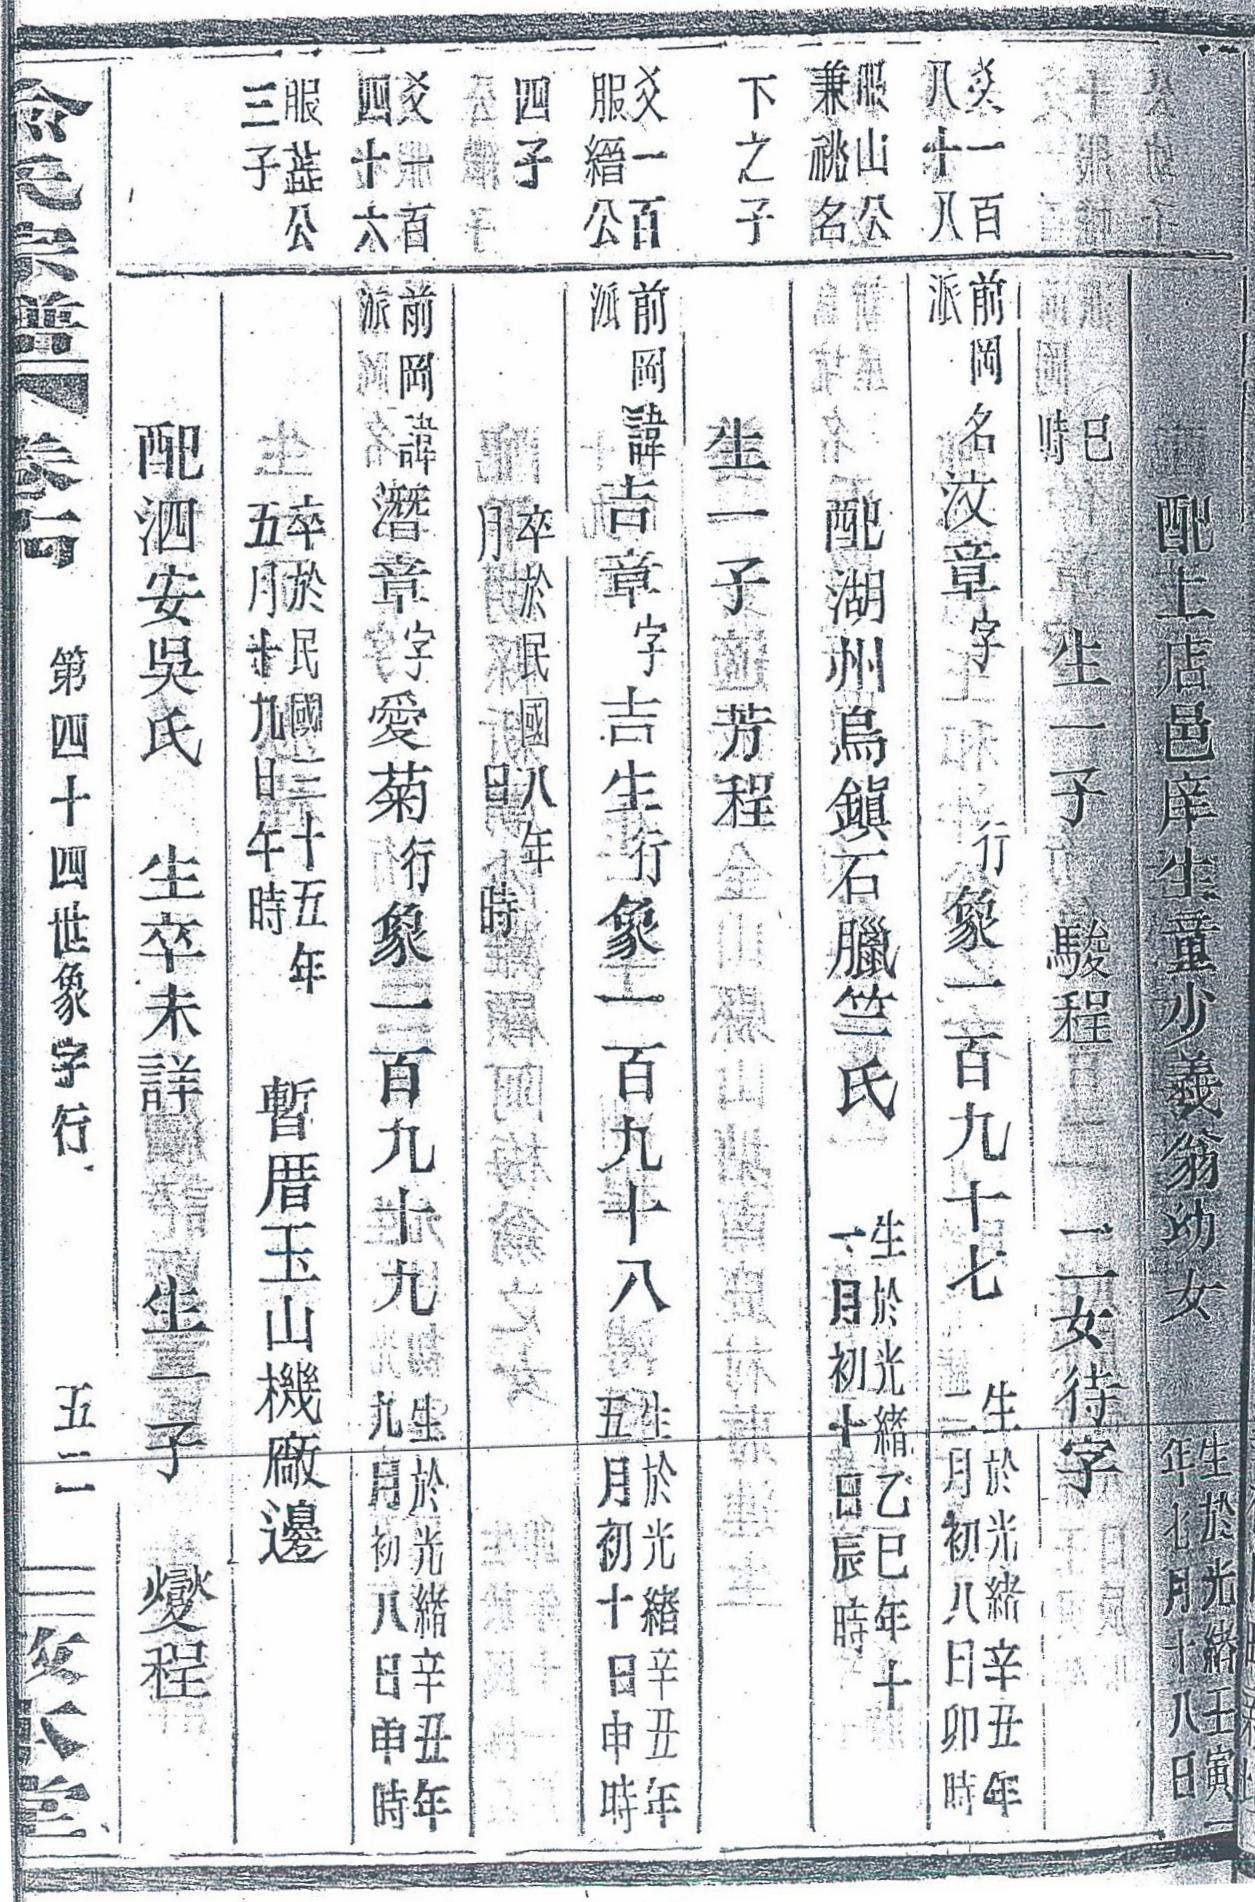 配土店邑庠生童少羲翁幼女 生於光緒壬寅年七月十八日
巳時 生一子 駿程 二女待字
爻一百八十八 前岡派 名汶章字 行象一百九十七 生於光緒辛丑年二月初八日卯時
服山公兼祧名 配湖州烏鎮石臘竺氏 生於光緒乙巳年十一月初十日辰時
下之子 生一子 芳程
爻一百 服縉公 前岡派 諱吉章字吉生行象一百九十八 生於光緒辛丑年五月初十日申時
四子 卒於民國八年 月 日 時
爻一百四十六 前岡派 諱潛章字愛菊行象一百九十九 生於光緒辛丑年九月初八日申時
服蓝公三子 卒於民國三十五年五月十九日午時 暫厝玉山機廠邊
配泗安吳氏 生卒未詳 生一子 燮程
俞氏宗譜 卷 第四十四世象字行 五二 本堂